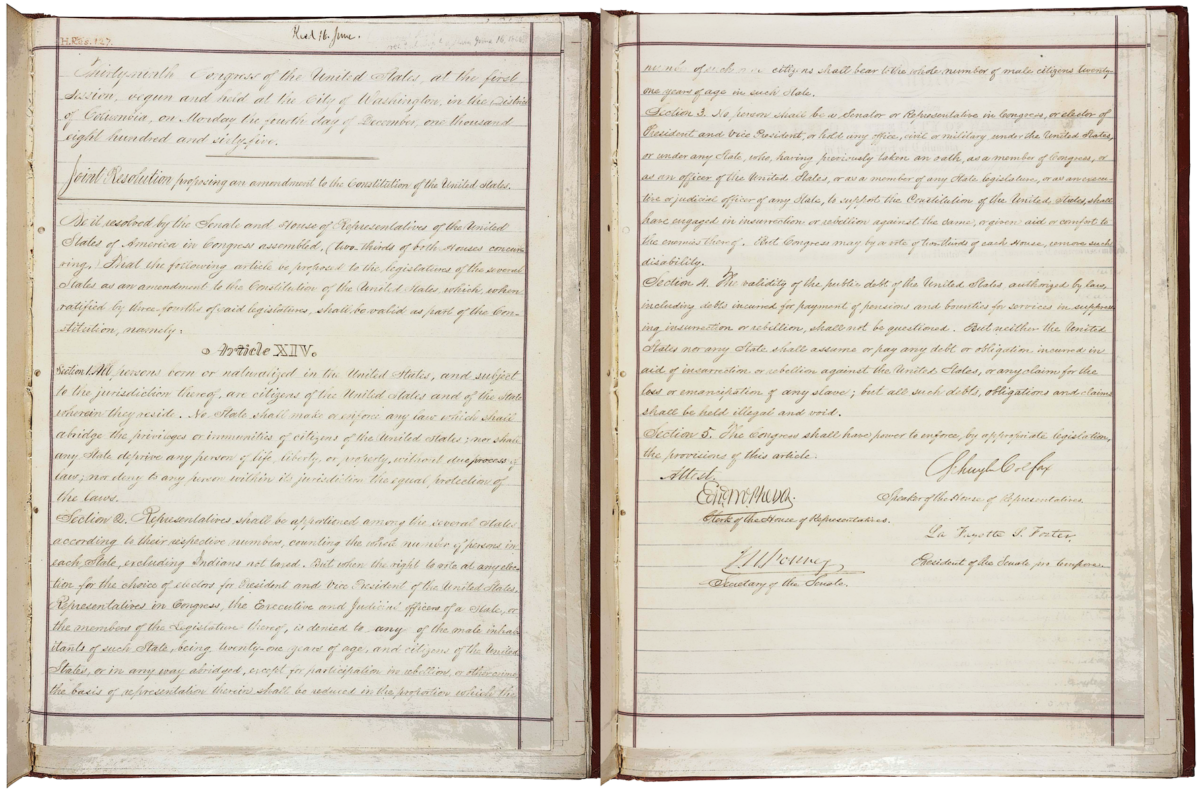 H.Res. 127.
Recd 16. June.
Thirty-ninth Congress of the United States, at the first
session, begun and held at the City of Washington, in the District
of Columbia, on Monday the fourth day of December, one thousand
eight hundred and sixty-five.
Joint Resolution proposing an amendment to the Constitution of the United States.
Be it resolved by the Senate and House of Representatives of the United
States of America in Congress assembled, (two-thirds of both Houses concur-
ring,) That the following article be proposed to the legislatures of the several
States as an amendment to the Constitution of the United States, which, when
ratified by three-fourths of said legislatures, shall be valid as part of the Con-
stitution, namely:
Article XIV.
Section 1. All persons born or naturalized in the United States, and subject
to the jurisdiction thereof, are citizens of the United States and of the State
wherein they reside. No State shall make or enforce any law which shall
abridge the privileges or immunities of citizens of the United States; nor shall
any State deprive any person of life, liberty, or property, without due process of
law; nor deny to any person within its jurisdiction the equal protection of
the laws.
Section 2. Representatives shall be apportioned among the several States
according to their respective numbers, counting the whole number of persons in
each State, excluding Indians not taxed. But when the right to vote at any elec-
tion for the choice of electors for President and Vice President of the United States,
Representatives in Congress, the Executive and Judicial officers of a State, or
the members of the Legislature thereof, is denied to any of the male inhab-
itants of such State, being twenty-one years of age, and citizens of the United
States, or in any way abridged, except for participation in rebellion, or other crime,
the basis of representation therein shall be reduced in the proportion which the
number of such male citizens shall bear to the whole number of male citizens twenty-
one years of age in such State.
Section 3. No person shall be a Senator or Representative in Congress, or elector of
President and Vice President, or hold any office, civil or military, under the United States,
or under any State, who, having previously taken an oath, as a member of Congress, or
as an officer of the United States, or as a member of any State legislature, or as an execu-
tive or judicial officer of any State, to support the Constitution of the United States, shall
have engaged in insurrection or rebellion against the same, or given aid or comfort to
the enemies thereof. But Congress may by a vote of two-thirds of each House, remove such
disability.
Section 4. The validity of the public debt of the United States, authorized by law,
including debts incurred for payment of pensions and bounties for services in suppress-
ing insurrection or rebellion, shall not be questioned. But neither the United
States nor any State shall assume or pay any debt or obligation incurred in
aid of insurrection or rebellion against the United States, or any claim for the
loss or emancipation of any slave; but all such debts, obligations and claims
shall be held illegal and void.
Section 5. The Congress shall have power to enforce, by appropriate legislation,
the provisions of this article.
Attest.
Schuyler Colfax
Edwd McPherson.
Speaker of the House of Representatives
Clerk of the House of Representatives.
La Fayette S. Foster
J.W. Forney
President of the Senate pro tempore.
Secretary of the Senate.